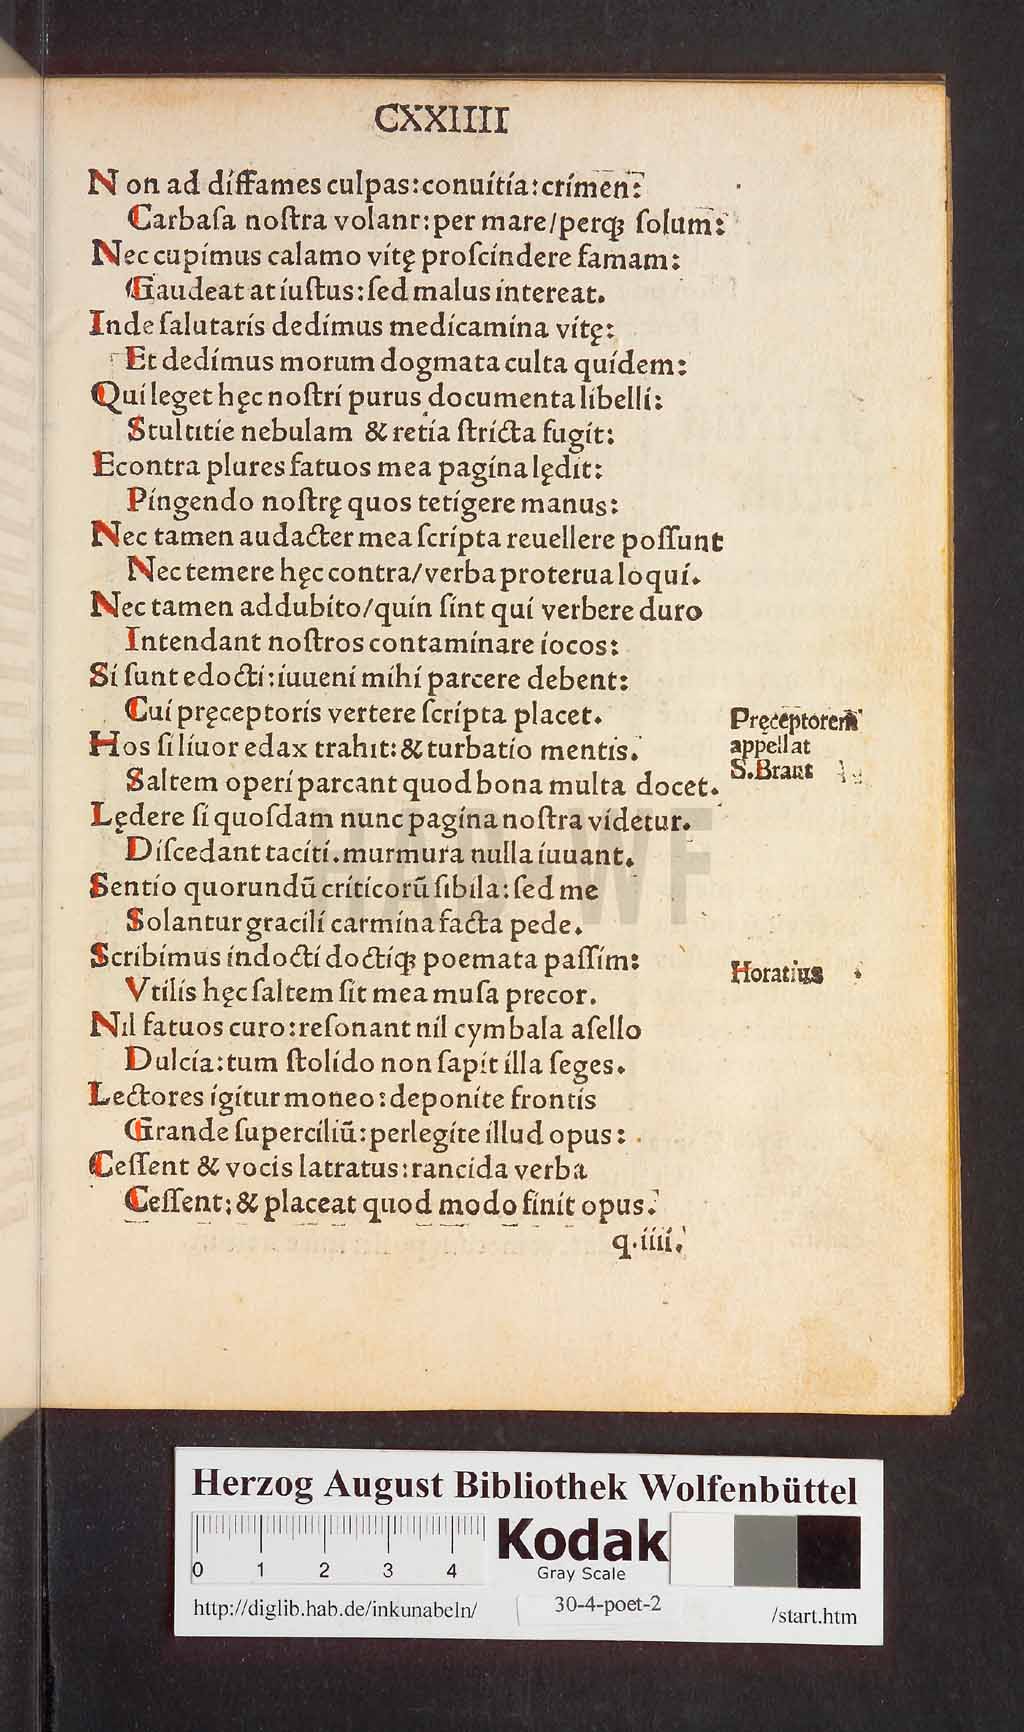 CXXIIII
Non ad diffames culpas:conuitia:crimen:
Carbaſa noſtra volanr:per mare/perqꝫ ſolum:
Nec cupimus calamo vitę proſcindere famam:
Gaudeat at iuſtus:ſed malus intereat.
Inde ſalutaris dedimus medicamina vitę:
Et dedimus morum dogmata culta quidem:
Qui leget hęc noſtri purus documenta libelli:
Stultitie nebulam & retia ſtricta fugit:
Econtra plures fatuos mea pagina lędit:
Pingendo noſtrę quos tetigere manus:
Nec tamen audacter mea ſcripta reuellere poſſunt
Nec temere hęc contra/verba proterua loqui.
Nec tamen addubito/quin ſint qui verbere duro
Intendant noſtros contaminare iocos:
Si ſunt edocti:iuueni mihi parcere debent:
Cui pręceptoris vertere ſcripta placet.
Pręceptorem
appellat
S.Brant
Hos ſi liuor edax trahit:& turbatio mentis.
Saltem operi parcant quod bona multa docet.
Lędere ſi quoſdam nunc pagina noſtra videtur.
Diſcedant taciti.murmura nulla iuuant.
Sentio quorundū criticorū ſibila:ſed me
Solantur gracili carmina facta pede.
Scribimus indocti doctiqꝫ poemata paſſim:
Horatius
Vtilis hęc ſaltem ſit mea muſa precor.
Nil fatuos curo:reſonant nil cymbala aſello
Dulcia:tum ſtolido non ſapit illa ſeges.
Lectores igitur moneo:deponite frontis
Grande ſuperciliū:perlegite illud opus:
Ceſſent & vocis latratus:rancida verba
Ceſſent:& placeat quod modo finit opus.
q.iiii.
HAB WF
Herzog August Bibliothek Wolfenbüttel
0 1 2 3 4
Kodak
Gray Scale
http://diglib.hab.de/inkunabeln/ 30-4-poet-2 /start.htm